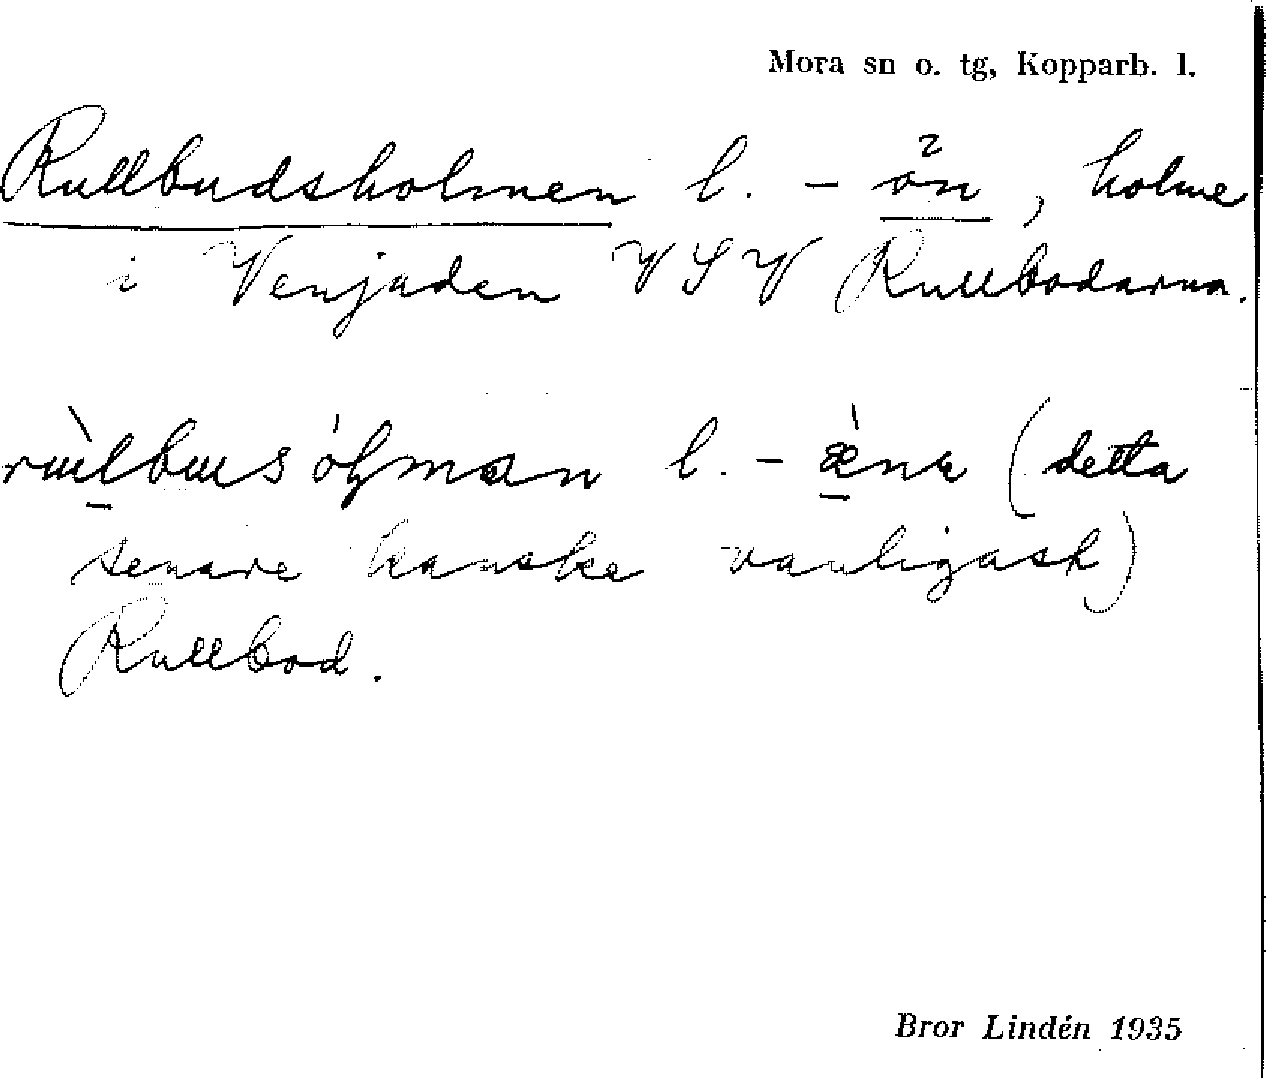 Mora sn o. tg, Kopparb. l.
Rullbudsholmen l. - ön, holme
i Venjaden VSV Rullbodarna.
l. - (detta
senare kanske vanligast)
Rullbod.
Bror Lindén 1935